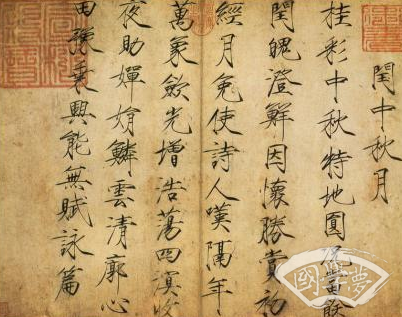 閏中秋月
桂彩中秋特地圓況當餘
閏魄澄鮮因懷勝賞初
經月免使詩人嘆隔年
萬象斂光增浩蕩四溟收
夜助嬋娟鱗雲清廓心
田豫乘興能無賦詠篇
國學夢